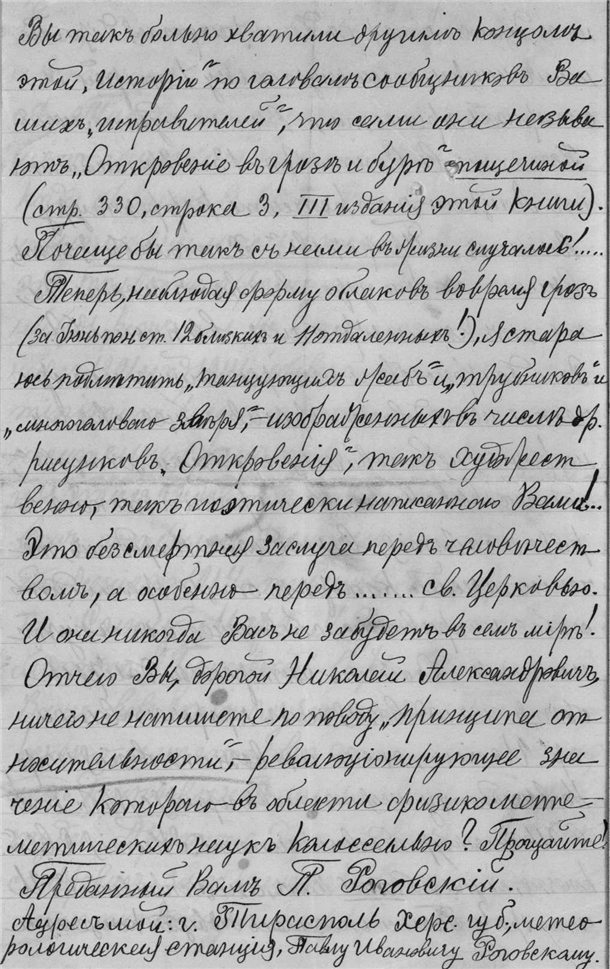 Вы такъ больно хватили другимъ концомъ
этой „исторіи" по головамъ сообщниковъ Ва
шихъ „исправителей", что сами они называ
ютъ „Откровеніе въ грозѣ и бурѣ" пощечиной
(стр. 330, строка 3, III изданія этой книги).
Почаще бы такъ съ ними въ жизни случалось!.....
Теперь, наблюдая форму облаковъ во время грозъ
(за Іюнь по н. ст. 12 близкихъ и 11 отдаленныхъ!), я стара
юсь подмѣтить „танцующихъ жабъ" и „трубниковъ" и
„многоголоваго звѣря", – изображенныхъ въ числѣ др.
рисунковъ „Откровенія", такъ художест
венно, такъ поэтически написаннаго Вами!..
Это безсмертная заслуга передъ человѣчест
вомъ, а особенно передъ ....... св. Церковью.
И они никогда Васъ не забудетъ въ семъ мірѣ!
Отчего Вы, дорогой Николай Александровичъ,
ничего не напишете по поводу „принципа от
носительности", – революціонирующее зна
ченіе котораго въ области физико мате–
матическихъ наукъ колоссально? Прощайте!
Преданный Вамъ П. Роговскій.
Адресъ мой: г. Тирасполь Херс. губ., метео
рологическая станція, Павлу Ивановичу Роговскому.